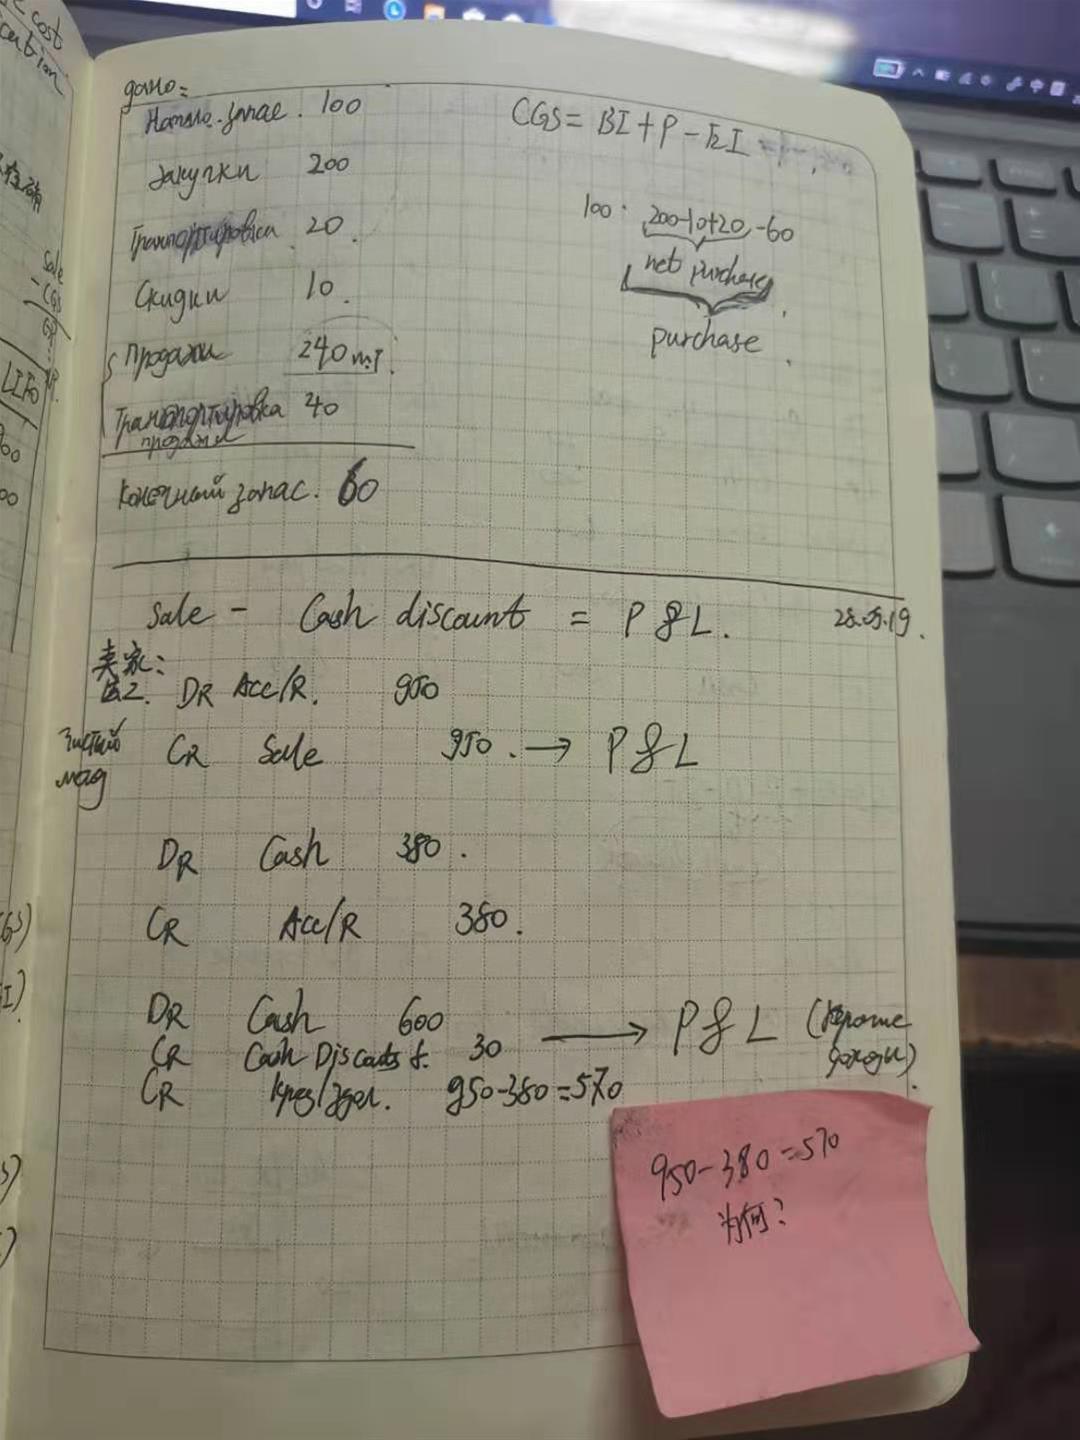 дано:
запас. 100
CGS = BI + P - EI
закупки 200
Транспортировка 20.
100. 200-10+20 -60
net purchase
Скидки 10.
purchase
продажи 240
Транспортировка 40
продажи
Конечный запас. 60
Sale - Cash discount = P & L.
28.05.19.
卖家:
DR Acc/R. 950
CR Sale 950. → P & L
DR Cash 380.
CR Acc/R 380.
DR Cash 600
CR Cash 30 → P & L (прочие доходы)
CR 950-380=570
950-380=570
为何?
cost
Sale
- CGS
LIFO